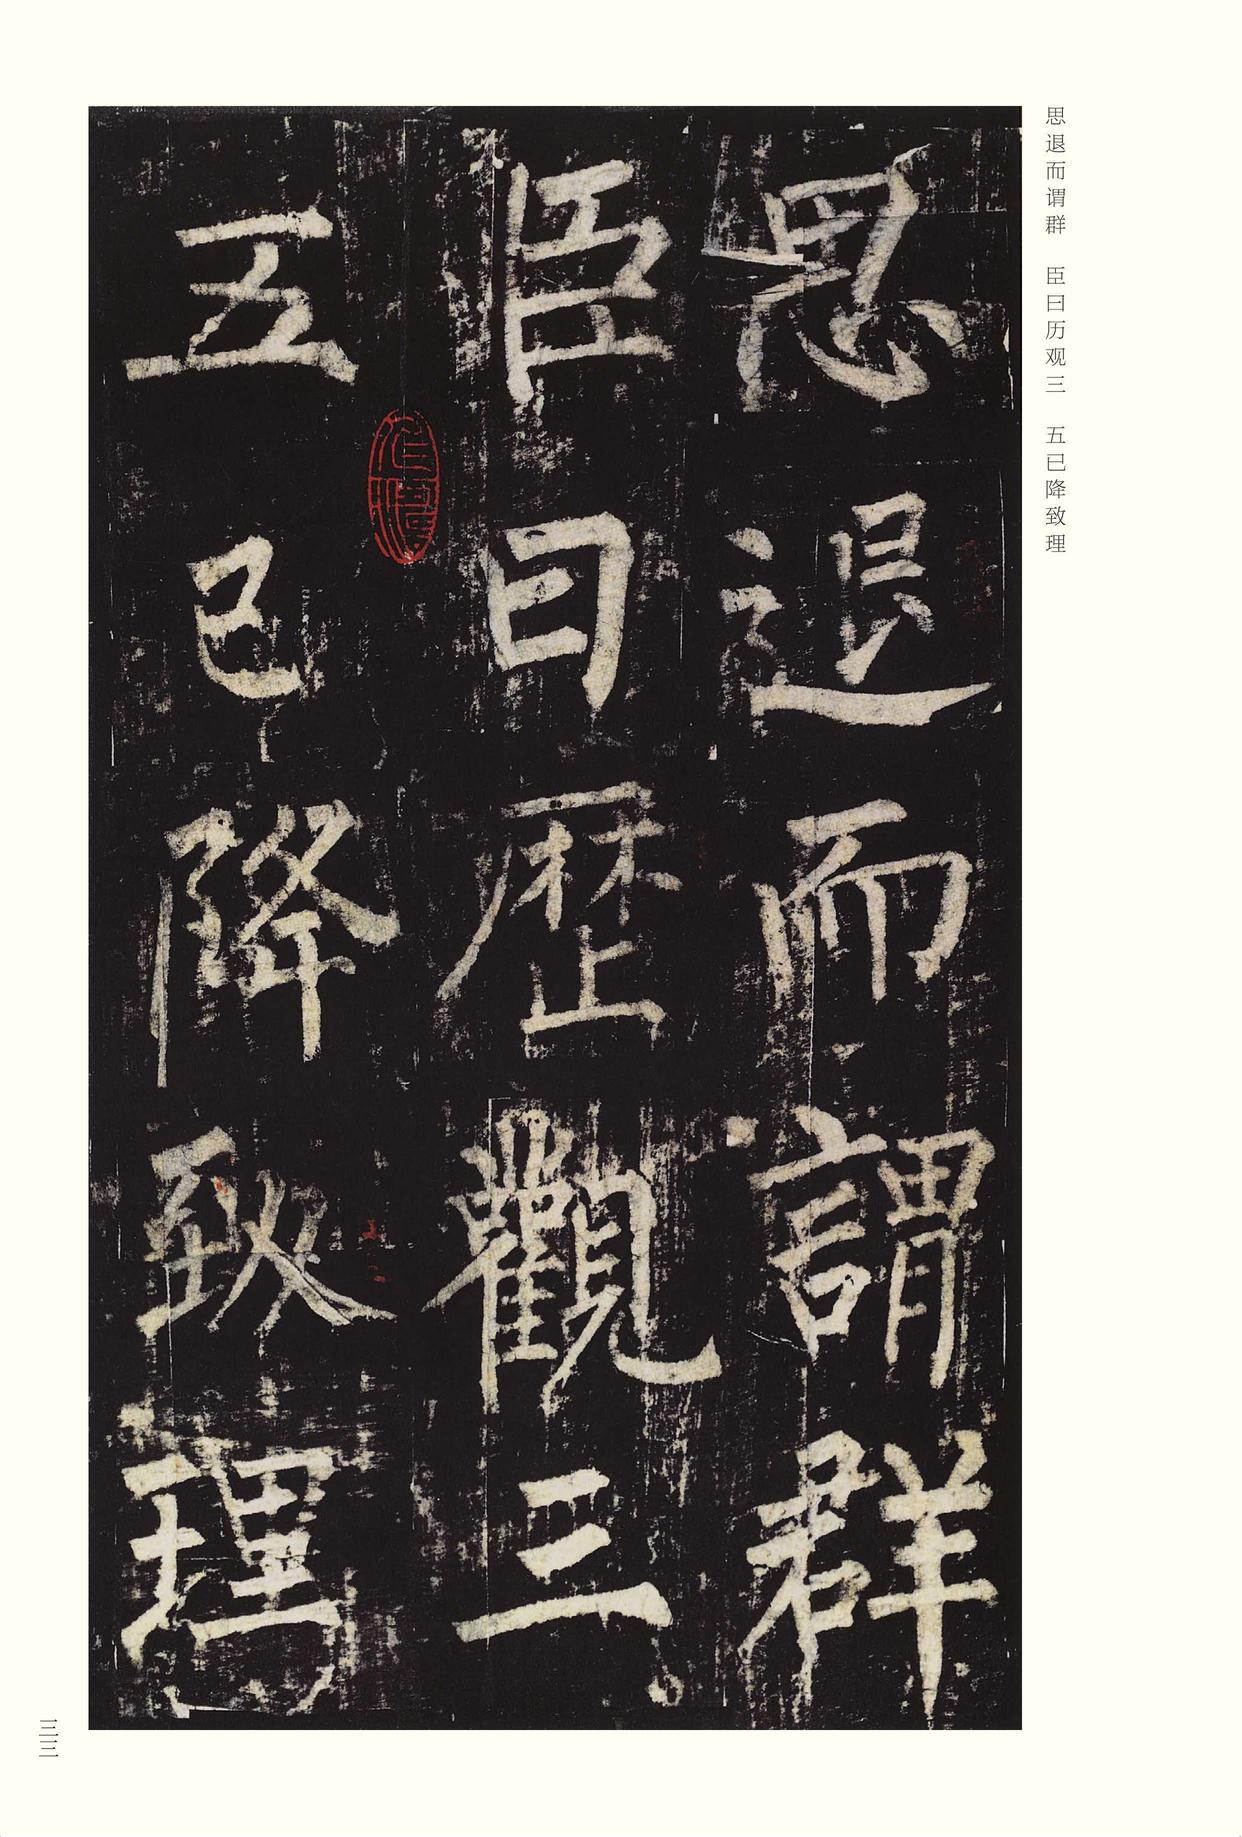 思退而謂群
臣曰歷觀三
五已降致理
思退而谓群 臣曰历观三 五已降致理
三三